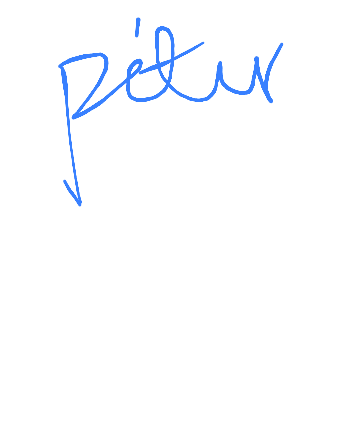 pétur